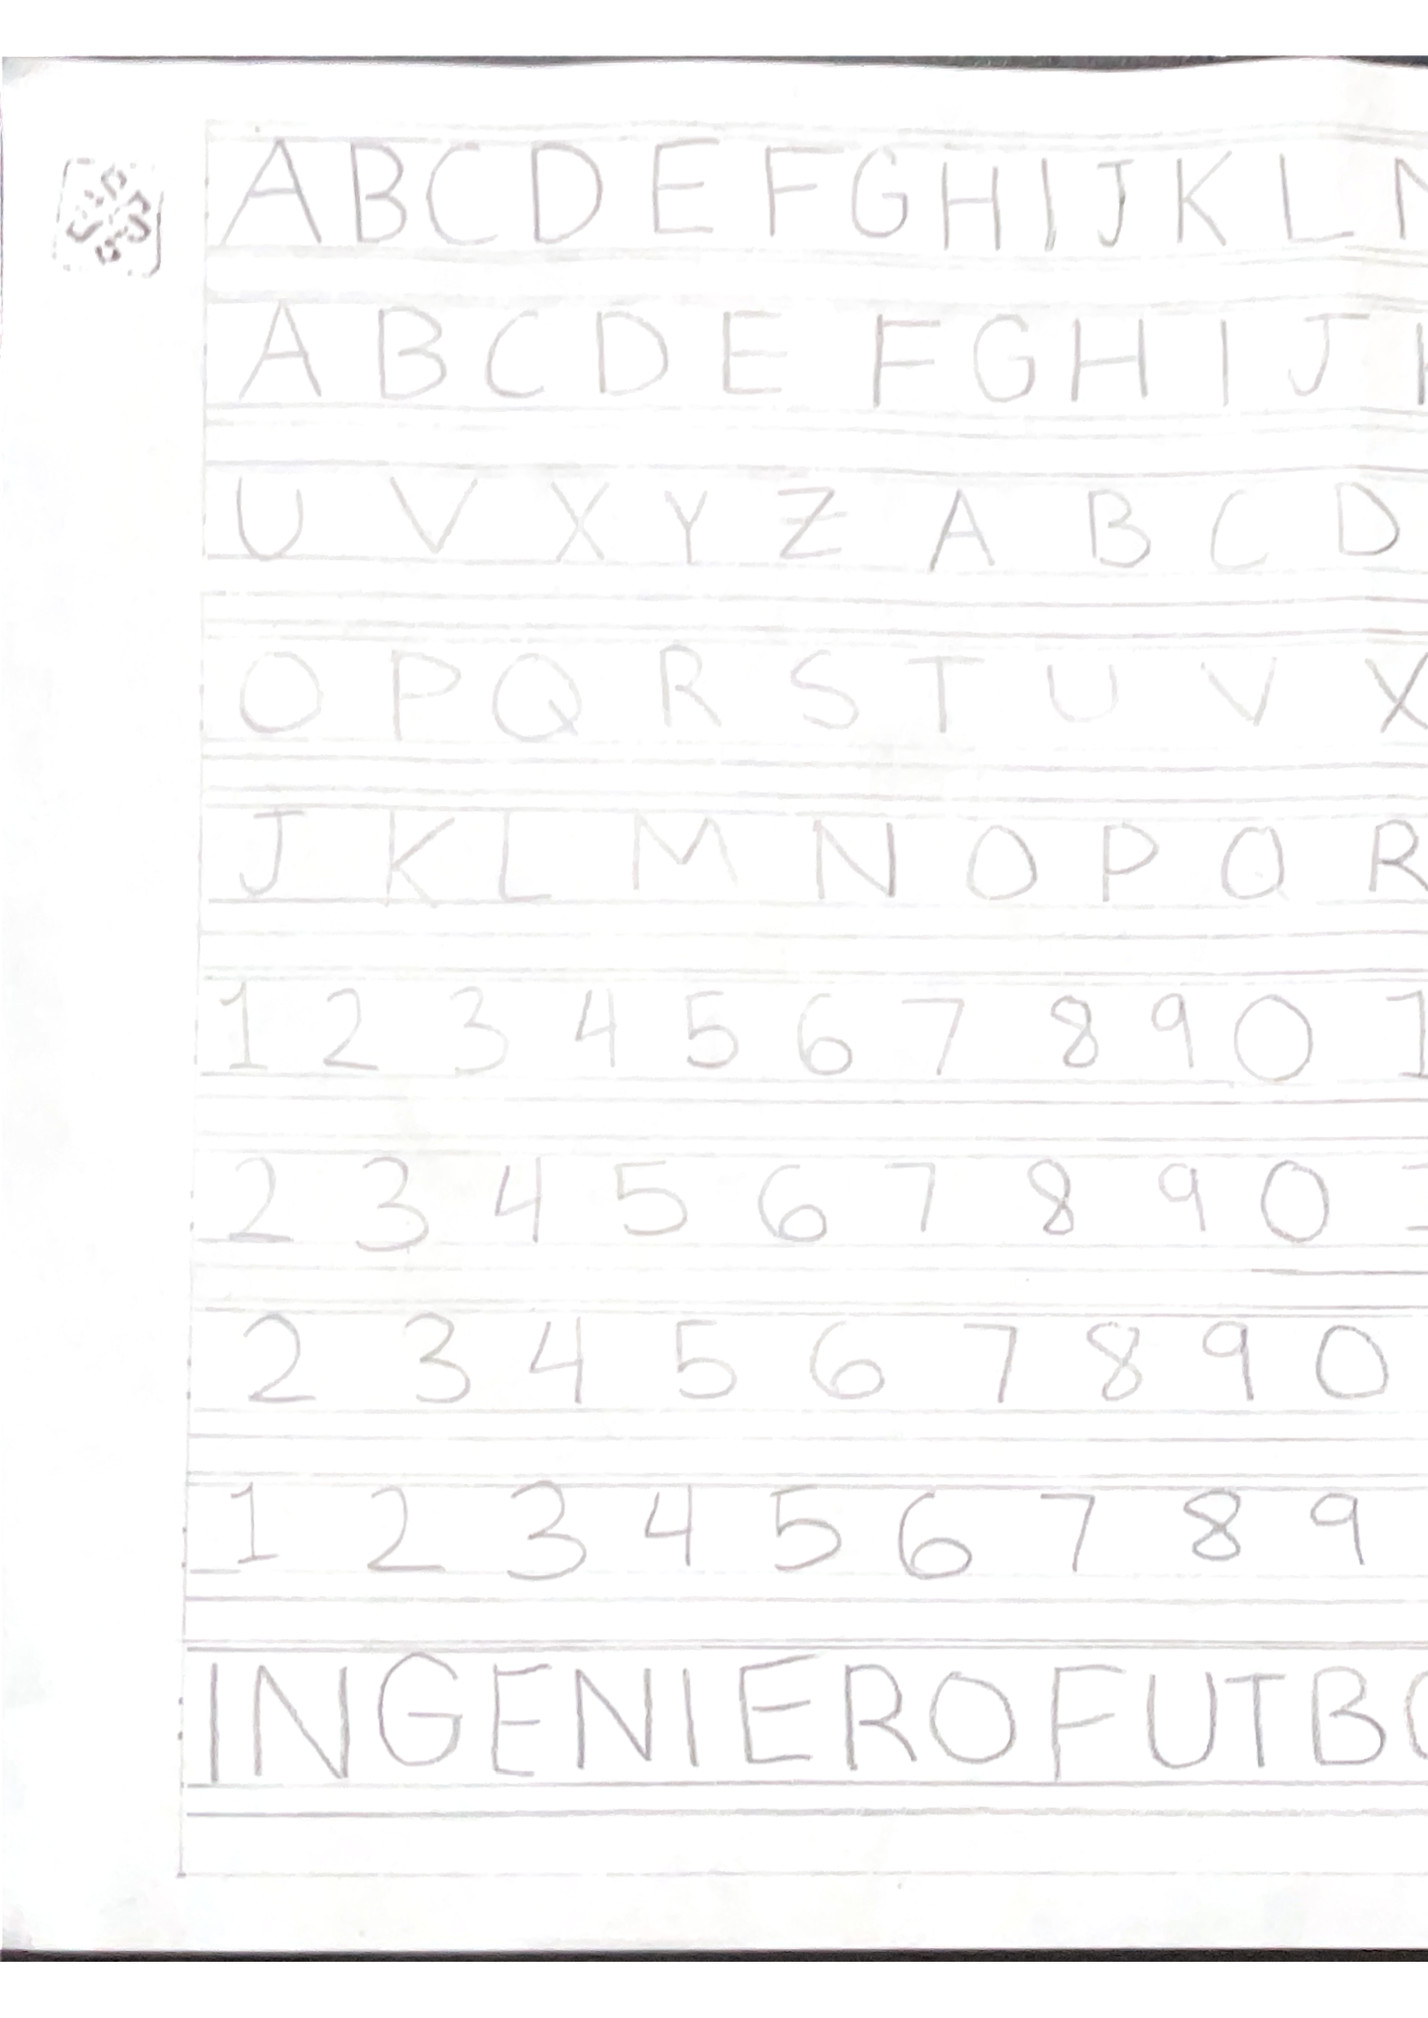 A B C D E F G H I J K L
A B C D E F G H I J
U V X Y Z A B C D
O P Q R S T U V X
J K L M N O P Q R
1 2 3 4 5 6 7 8 9 0 1
2 3 4 5 6 7 8 9 0
2 3 4 5 6 7 8 9 0
1 2 3 4 5 6 7 8 9
INGENIERO FUTBO